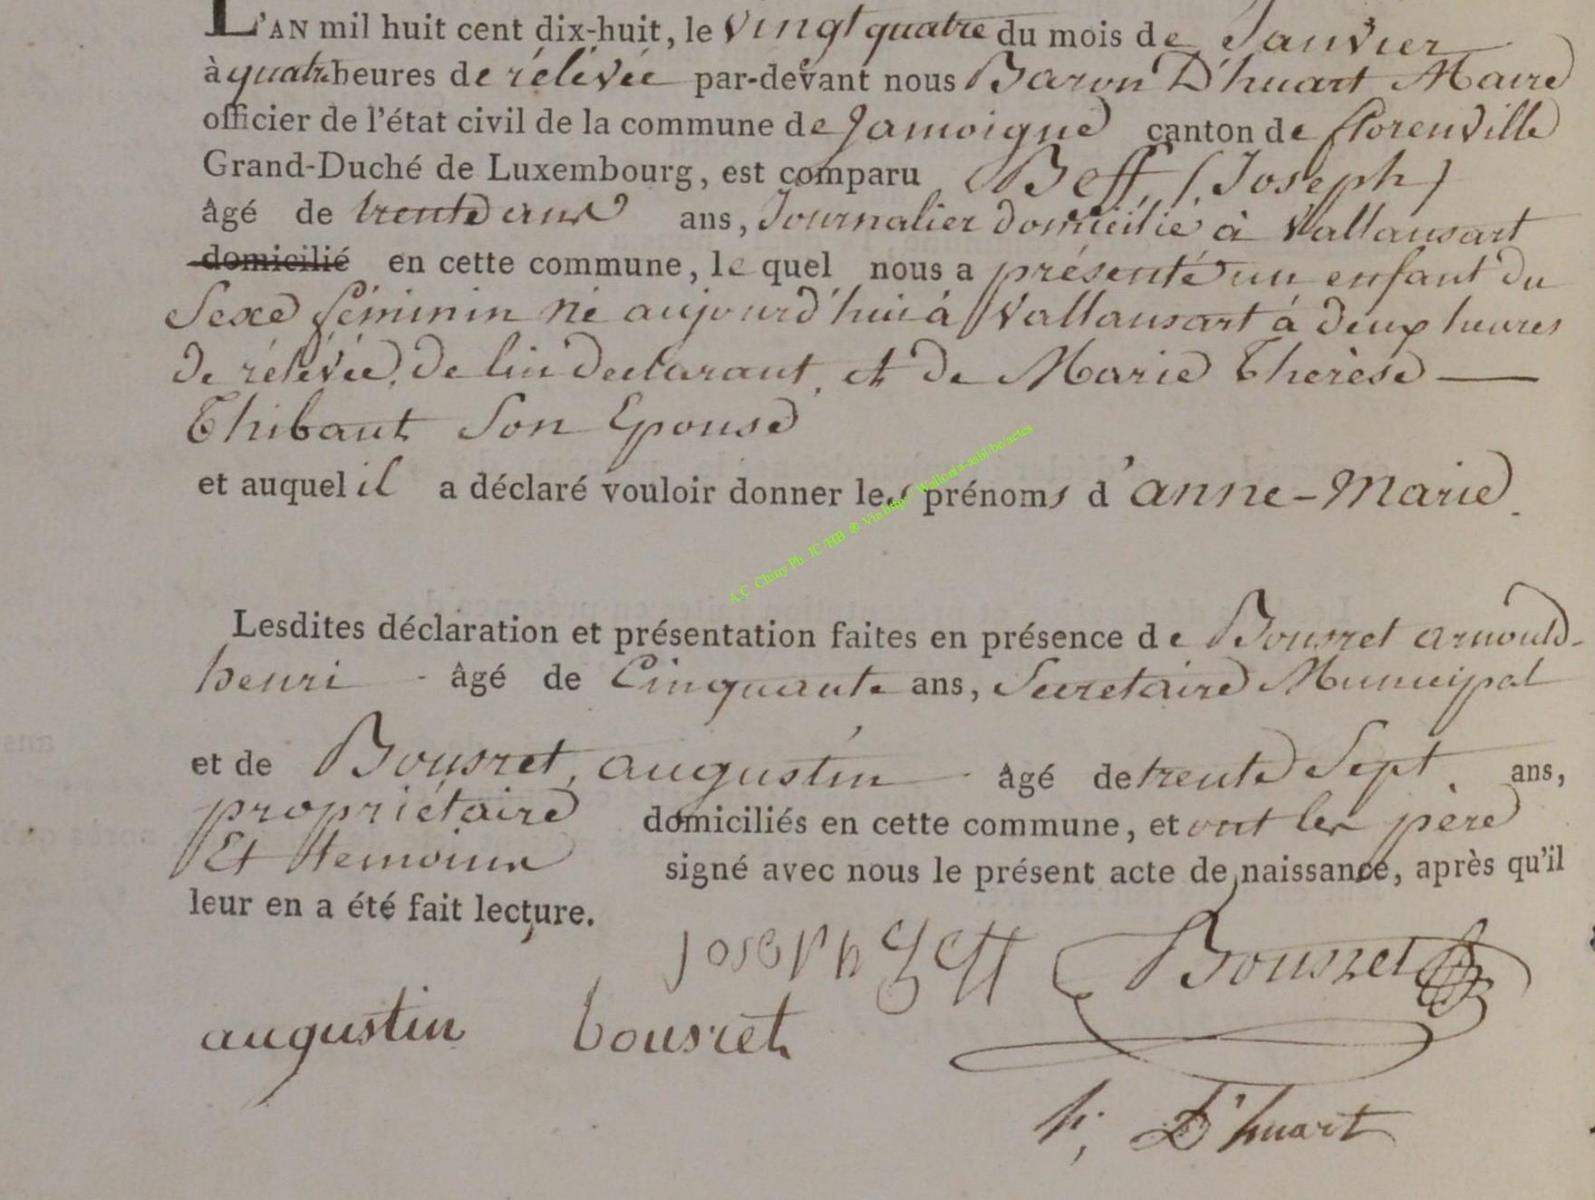 L'AN mil huit cent dix-huit, le vingt quatre du mois de Janvier
à quatre heures de rélévée par-devant nous Baron D'huart Maire
officier de l'état civil de la commune de Jamoigne canton de florenville
Grand-Duché de Luxembourg, est comparu Beff, (Joseph)
âgé de trente ans ans, Journalier domicilié à Vallansart
domicilié en cette commune, le quel nous a présenté un enfant du
Sexe féminin né aujourd'hui à Vallansart à deux heures
de rélévée, de lui declarant, et de Marie Thérèse —
Thibaut Son Epouse
et auquel il a déclaré vouloir donner les prénoms d'anne-Marie.
Lesdites déclaration et présentation faites en présence de Bousret arnould-
henri - âgé de Cinquante ans, Secretaire Municipal
et de Bousret, augustin âgé de trente Sept ans,
propriétaire domiciliés en cette commune, et ont les père
Et temoins signé avec nous le présent acte de naissance, après qu'il
leur en a été fait lecture.
joseph beff Bousret
augustin bousret
h, D'huart